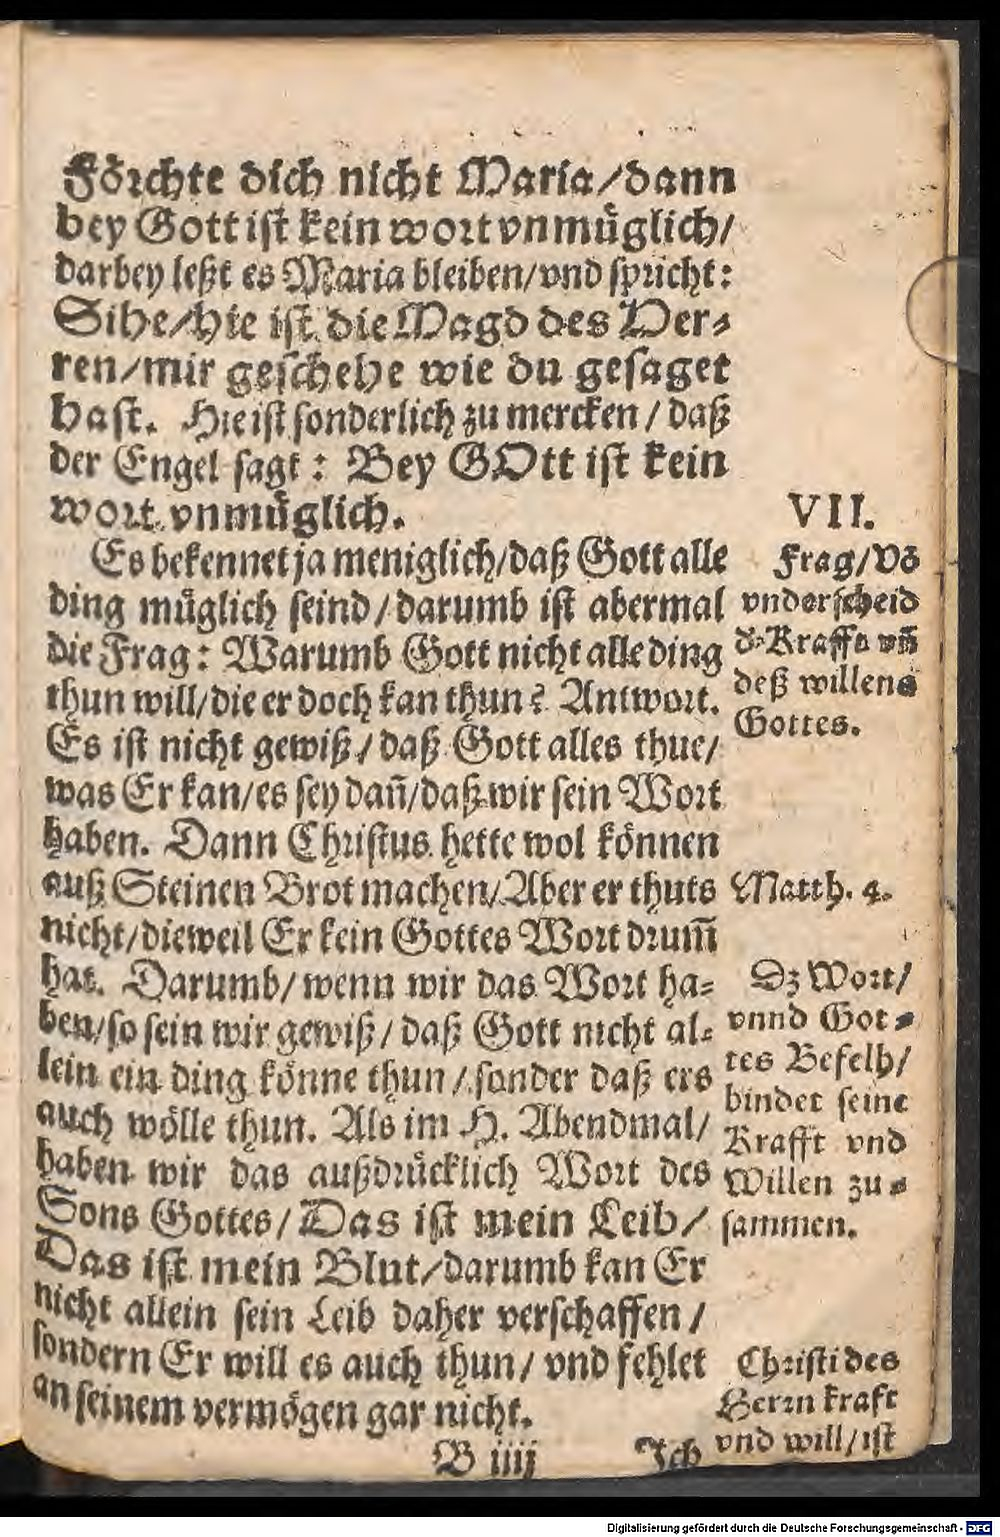 Förchte dich nicht Maria/dann
bey Gott ist kein wort vnmüglich/
darbey leßt es Maria bleiben/vnd spricht:
Sihe/hie ist die Magd des Her-
ren/mir geschehe wie du gesaget
hast. Hie ist sonderlich zu mercken/daß
der Engel sagt: Bey GOtt ist kein
wort vnmüglich.
Es bekennet ja meniglich/daß Gott alle
ding müglich seind/darumb ist abermal
die Frag: Warumb Gott nicht alle ding
thun will/die er doch kan thun? Antwort.
Es ist nicht gewiß/daß Gott alles thue/
was Er kan/es sey dañ/daß wir sein Wort
haben. Dann Christus hette wol können
auß Steinen Brot machen/Aber er thuts
nicht/dieweil Er kein Gottes Wort drum̃
hat. Darumb/wenn wir das Wort ha-
ben/so sein wir gewiß/daß Gott nicht al-
lein ein ding könne thun/sonder daß ers
auch wölle thun. Als im H. Abendmal/
haben wir das außdrücklich Wort des
Sons Gottes/Das ist mein Leib/
Das ist mein Blut/darumb kan Er
nicht allein sein Leib daher verschaffen/
sondern Er will es auch thun/vnd fehlet
an seinem vermögen gar nicht.
B iiij
Ich
VII.
Frag/Võ
vnderscheid
d' Krafft vñ
deß willens
Gottes.
Matth. 4.
Dz Wort/
vnnd Got-
tes Befelh/
bindet seine
Krafft vnd
Willen zu-
sammen.
Christi des
Herrn kraft
vnd will/ist
Digitalisierung gefördert durch die Deutsche Forschungsgemeinschaft - DFG